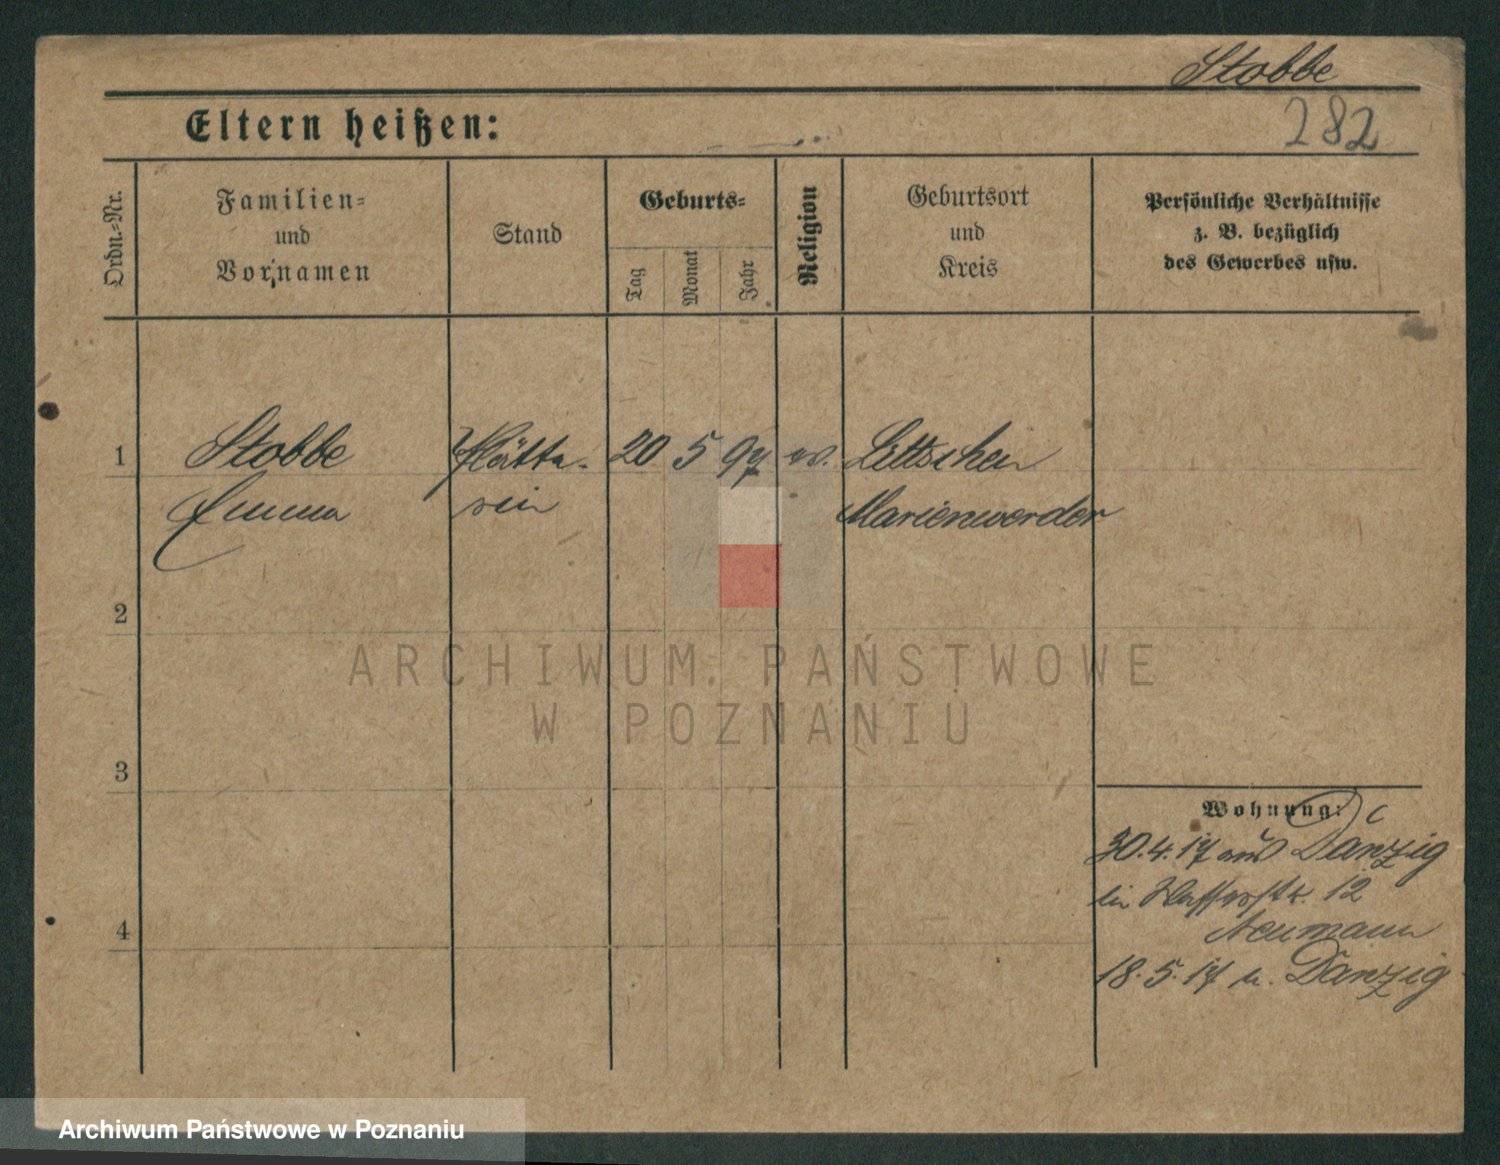 Stobbe
Eltern heißen:
282
Ordn.-Nr.
Familien-
und
Vornamen
Stand
Geburts-
Tag
Monat
Jahr
Religion
Geburtsort
und
Kreis
Persönliche Verhältnisse
z. B. bezüglich
des Gewerbes usw.
1
Stobbe
Plätte-
20
5
97
ev.
Littschen
Emma
rin
Marienwerder
2
ARCHIWUM PAŃSTWOWE
W POZNANIU
3
Wohnung:
30.4.17 aus Danzig
Wasserstr. 12
Neumann
4
18.5.17 n. Danzig
Archiwum Państwowe w Poznaniu